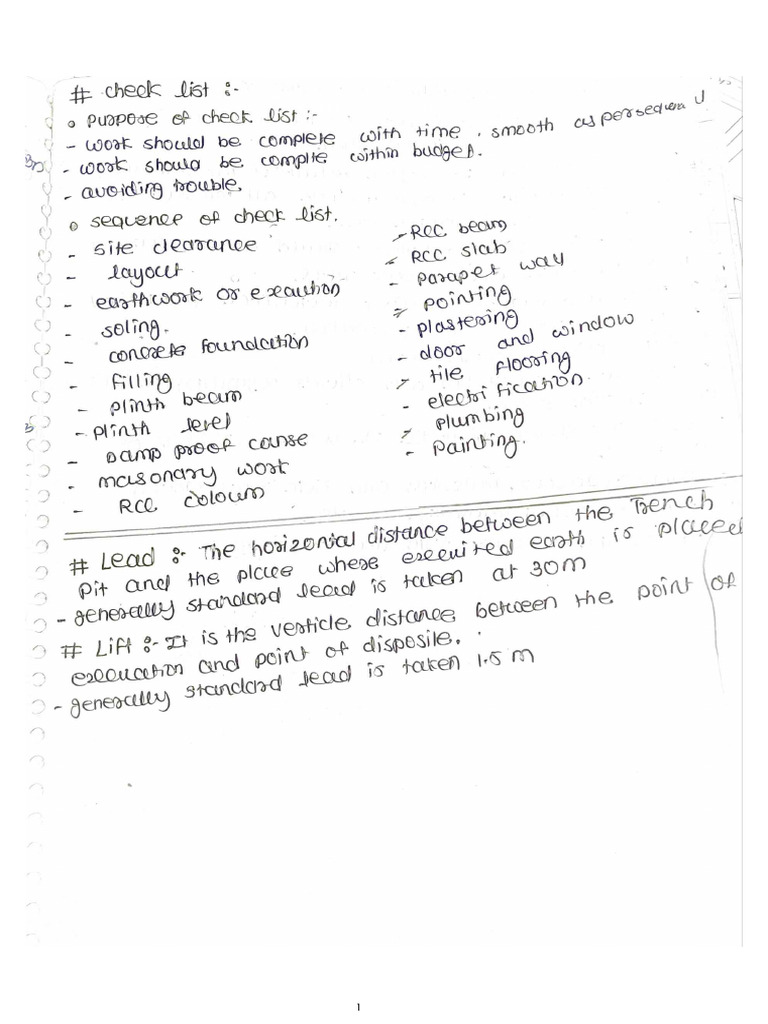 # check list :-
o purpose of check list :-
- work should be complete with time. smooth as per
- work should be complite within budget.
- avoiding trouble.
o sequence of check list.
- site clearance
- layout
- earthwork or exaution
- soling.
- concrete foundation
- filling
- plinth beam
- plinth level
- Damp proof cause
- masonary work
- RCC coloum
- RCC beam
- RCC slab
- parapet way
- pointing
- plastering
- door and window
- tile flooring
- electrification.
- plumbing
- painting.
# Lead :- The horizonial distance between the Trench
pit and the place where exequited earth is placeed
- generally standard lead is taken at 30m
# Lift :- It is the verticle distance between the point of
execuation and point of disposile.
- generally standard lead is taken 1.5 m
1